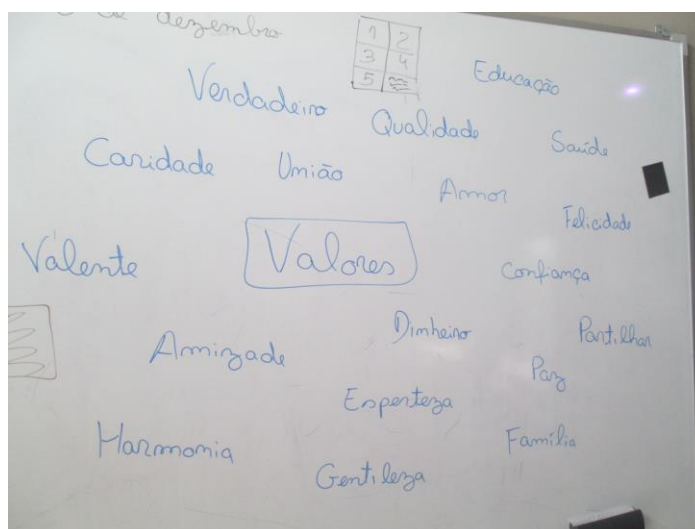 de dezembro
1 2
3 4
5
Educação
Verdadeiro
Qualidade
Saúde
Caridade
União
Amor
Felicidade
Valente
Valores
Confiança
Dinheiro
Partilhar
Amizade
Paz
Esperteza
Harmonia
Família
Gentileza